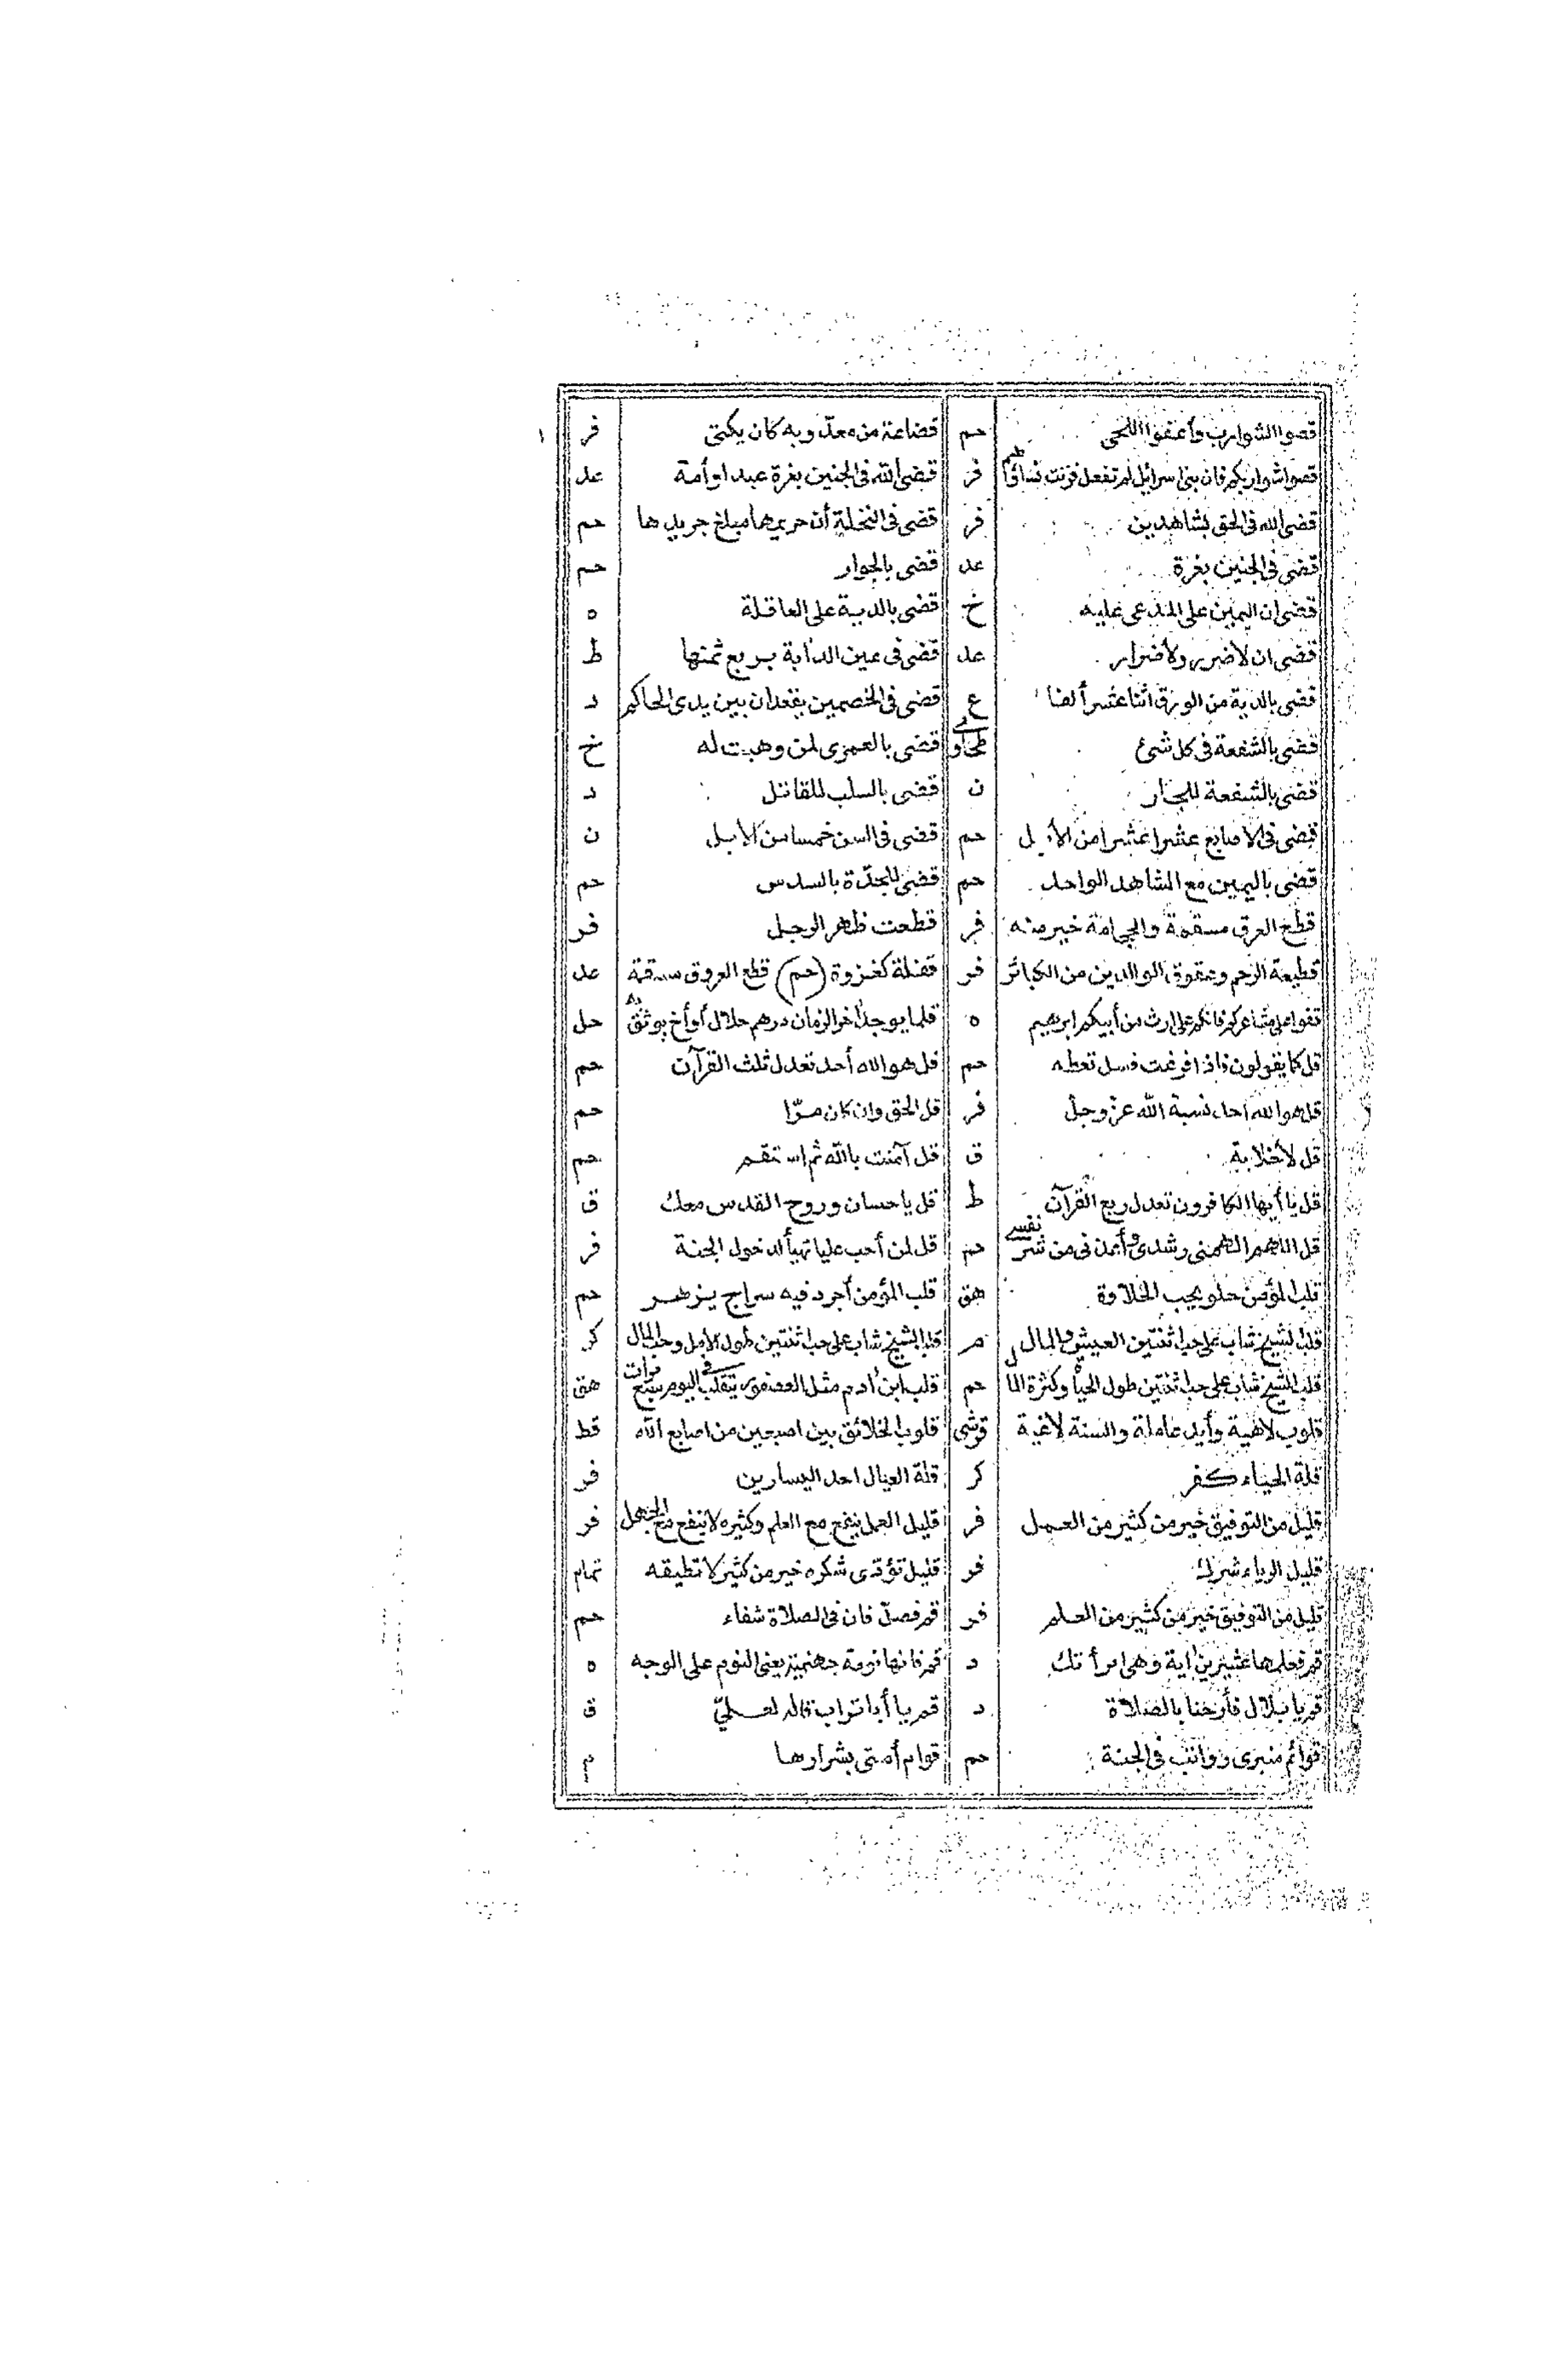 قصوا الشوارب وأعفوا اللحى حم قضاعة من معد وبه كان يكنى فر
قصوا شواربكم فان بنى اسرائيل لم تفعل فزنت نساؤهم فر قضى الله فى الجنين بغرة عبد او أمة عد
قضى الله فى الحق بشاهدين فر قضى فى النخلة أن حريمها مبلغ جريدها حم
قضى فى الجنين بغرة عد قضى بالجوار حم
قضى ان اليمين على المدعى عليه خ قضى بالدية على العاقلة ه
قضى ان لاضرر ولاضرار عد قضى فى عين الدابة بربع ثمنها ط
قضى بالدية من الورق اثنا عشر ألفا ع قضى فى الخصمين يقعدان بين يدى الحاكم د
قضى بالشفعة فى كل شئ طحاوى قضى بالعمرى لمن وهبت له خ
قضى بالشفعة للجار ن قضى بالسلب للقاتل د
قضى فى الاصابع عشرا عشرا من الأبل حم قضى فى السن خمسا من الابل ن
قضى باليمين مع الشاهد الواحد حم قضى للجدّة بالسدس حم
قطع العرق مسقمة والحجامة خير منه فر قطعت ظهر الرجل فر
قطيعة الرحم وعقوق الوالدين من الكبائر فر قفلة كغزوة (حم) قطع العروق مسقمة عد
قفوا على مشاعركم فانكم على ارث من أبيكم ابرهيم ه قلما يوجد اٰخر الزمان درهم حلال أو أخ يوثق به حل
قل كما يقولون فاذا فرغت فسل تعطه حم قل هو الله أحد تعدل ثلث القرآن حم
قل هو الله احد نسبة الله عزّ وجلّ فر قل الحق وان كان مرّا حم
قل لاخلابة ق قل آمنت بالله ثم استقم حم
قل يا أيها الكافرون تعدل ربع القرآن ط قل يا حسان وروح القدس معك ق
قل اللهم الهمنى رشدى وأعذنى من شر نفسى حم قل لمن أحب عليا تهيأ لدخول الجنة فر
قلب المؤمن حلو يحب الحلاوة هق قلب المؤمن أجرد فيه سراج يزهر حم
قلب الشيخ شاب على حب اثنتين العيش والمال م قلب الشيخ شاب على حب اثنتين طول الأمل وحب المال كر
قلب الشيخ شاب على حب اثنتين طول الحياة وكثرة المال حم قلب ابن اٰدم مثل العصفور يتقلب فى اليوم سبع مرات هق
قلوب لاهية وأيد عاملة والسنة لاغية قرشى قلوب الخلائق بين اصبعين من اصابع الله قط
قلة الحياء كفر كر قلة العيال احد اليسارين فر
قليل من التوفيق خير من كثير من العمل فر قليل العمل ينفع مع العلم وكثيره لاينفع مع الجهل فر
قليل الرياء شرك فر قليل تؤدى شكره خير من كثير لا تطيقه تمام
قليل من التوفيق خير من كثير من العلم فر قم فصلّ فان فى الصلاة شفاء حم
قم فعلمها عشرين اٰية وهى امرأتك د قم فانها نومة جهنمية يعنى النوم على الوجه ه
قم يا بلال فأرحنا بالصلاة د قم يا أبا تراب قاله لعلىّ ق
قوائم منبرى رواتب فى الجنة حم قوام أمتى بشرارها م